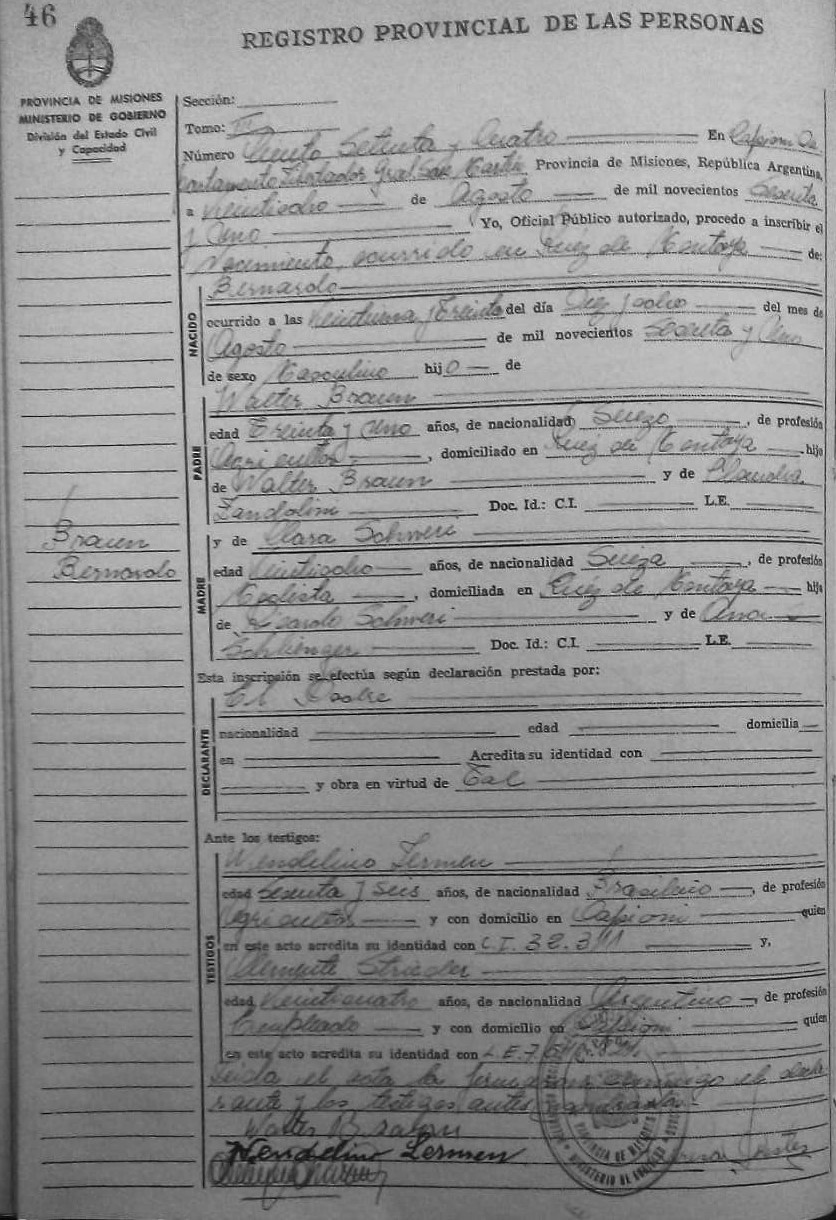 46
REGISTRO PROVINCIAL DE LAS PERSONAS
PROVINCIA DE MISIONES
MINISTERIO DE GOBIERNO
División del Estado Civil
y Capacidad
Sección:
Tomo: III
Número Ciento Setenta y Cuatro En Capiovi De
partamento Libertador Gral San Martin Provincia de Misiones, República Argentina,
a veintiocho de Agosto de mil novecientos Sesenta
y Uno Yo, Oficial Público autorizado, procedo a inscribir el
Nacimiento, ocurrido en Ruiz de Montoya de:
NACIDO
Bernardo
ocurrido a las veintiuna y treinta del día Diez y ocho del mes de
Agosto de mil novecientos Sesenta y Uno
de sexo Masculino hijo de
PADRE
Walter Braun
edad Treinta y uno años, de nacionalidad Suizo, de profesión
Agricultor, domiciliado en Ruiz de Montoya hijo
de Walter Braun y de Claudia
Zandolini Doc. Id.: C.I. L.E.
Braun
Bernardo
MADRE
y de Clara Schweri
edad Veintiocho años, de nacionalidad Suiza, de profesión
Modista, domiciliada en Ruiz de Montoya hija
de Schweri y de Ana
Doc. Id.: C.I. L.E.
Esta inscripción se efectúa según declaración prestada por:
DECLARANTE
El Padre
nacionalidad edad domicilia
en Acredita su identidad con
y obra en virtud de Tal
Ante los testigos:
TESTIGOS
Wendelino Lermen
edad Sesenta y seis años, de nacionalidad Brasileño, de profesión
Agricultor y con domicilio en Capiovi quien
en este acto acredita su identidad con C.I. 32.311 y,
edad Veinticuatro años, de nacionalidad Argentino, de profesión
Empleado y con domicilio en Capiovi quien
en este acto acredita su identidad con L.E. 7.
leida el acta la firmaron conmigo el decla
rante y los testigos antes nombrados.
Walter Braun
Wendelino Lermen
PROVINCIA DE MISIONES
MINISTERIO DE GOBIERNO